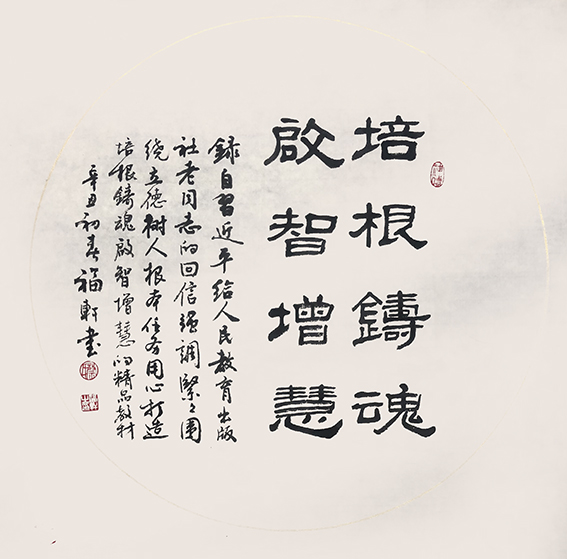 培根鑄魂
啟智增慧
録自習近平給人民教育出版
社老同志的回信强調緊々圍
绕立德樹人根本任务用心打造
培根鑄魂啟智增慧的精品教材
辛丑初春福軒書